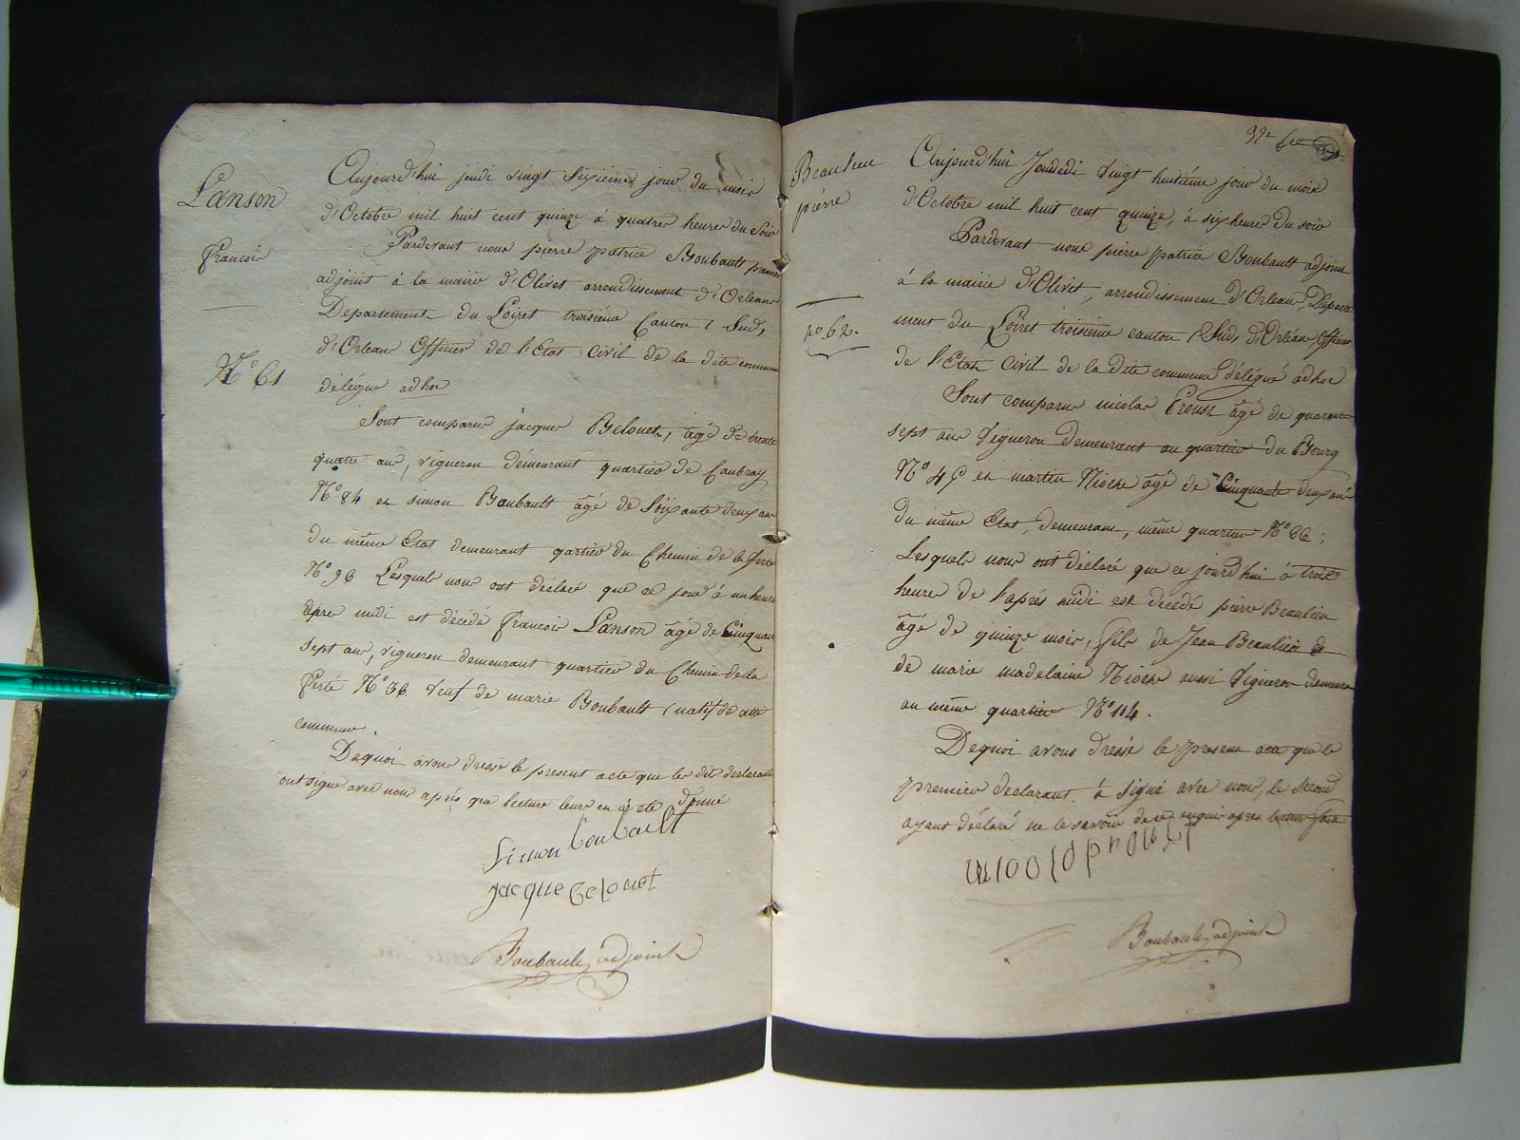 Lanson
françois
N° 61
Aujourd'hui jeudi vingt sixieme jour du mois
d'Octobre mil huit cent quinze à quatre heures du Soir
Pardevant nous pierre patrice Boubault premier
adjoint à la mairie d'Olivet arrondissement d'Orleans
Departement du Loiret troisieme Canton (Sud)
d'Orleans Officier de l'Etat Civil de la dite commune
délégué adhoc
Sont comparus jacques Belouet, agé de trente
quatre ans, vigneron démeurant quartier de Caubray
N° 84 et simon Boubault agé de Soixante deux ans
du même Etat demeurant qartier du Chemin de la ferté
N° 96 Lesquels nous ont declaré que ce jour à un heure
apre midi est décédé françois Lanson agé de Cinquante
sept ans, vigneron demeurant quartier du Chemin de la
ferté N° 36 veuf de marie Boubault (natif de cette
commune.
Dequoi avons dressé le present acte que les dits declarants
ont signé avec nous après que lecture leurs en a eté donné
Simon boubault
jacque belouet
Boubault, adjoint
Beaulieu
pierre
no. 62.
Aujourd'hui Samedi vingt huitiéme jour du mois
d'Octobre mil huit cent quinze, à six heures du soir
Pardevant nous pierre patrice Boubault adjoint
à la mairie d'Olivet, arrondissement d'Orleans, Departe
ment du Loiret troisieme canton (Sud) d'Orléans Officier
de l'Etat Civil de la dite commune délégué adhoc
Sont comparus nicolas agé de quarante
sept ans Vigneron demeurant au quartier du Bourg
N° 49 et martin Nioche agé de Cinquante deux ans
du même Etat, demeurant, même quartier N° 86;
Lesquels nous ont déclaré que ce jourd'hui à trois
heures de l'aprés midi est decédé pierre Beaulieu
âgé de quinze mois, fils de Jean Beaulieu et
de marie madelaine Nioche aussi Vigneron demeurant
au même quartier N° 114.
Dequoi avons dressé le present acte que le
premier declarant à signé avec nous, le second
ayant déclaré ne le savoir de ce requis apres lecture faite
Boubault, adjoint